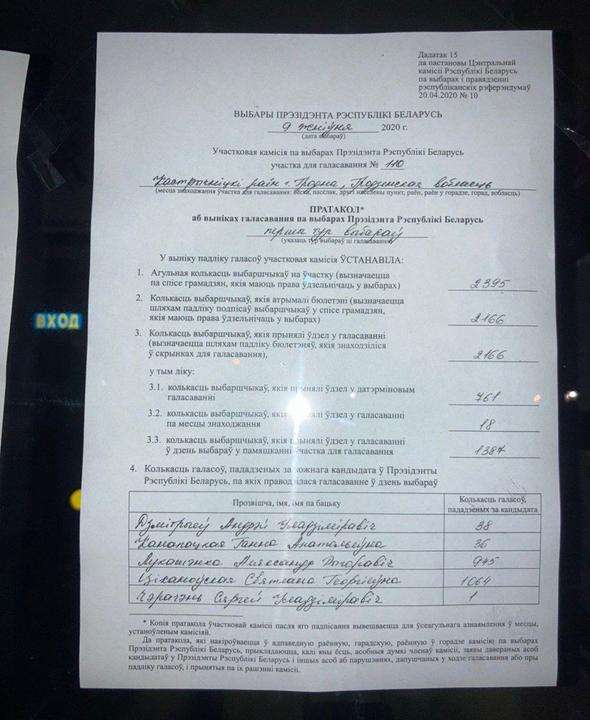 Дадатак 15
да пастановы Цэнтральнай
камісіі Рэспублікі Беларусь
па выбарах і правядзенні
рэспубліканскіх рэферэндумаў
20.04.2020 № 10
ВЫБАРЫ ПРЭЗІДЭНТА РЭСПУБЛІКІ БЕЛАРУСЬ
9 жніўня 2020 г.
(дата выбараў)
Участковая камісія па выбарах Прэзідэнта Рэспублікі Беларусь
участка для галасавання № 110
Кастрычніцкі раён г. Гродна, Гродзенская вобласць
(месца знаходжання ўчастка для галасавання: вёска, пасёлак, другі населены пункт, раён, раён у горадзе, горад, вобласць)
ПРАТАКОЛ*
аб выніках галасавання па выбарах Прэзідэнта Рэспублікі Беларусь
першы тур выбараў
(указаць тур выбараў ці галасаванне)
У выніку падліку галасоў участковая камісія ЎСТАНАВІЛА:
1. Агульная колькасць выбаршчыкаў на ўчастку (вызначаецца
па спісе грамадзян, якія маюць права ўдзельнічаць у выбарах) 2395
2. Колькасць выбаршчыкаў, якія атрымалі бюлетэні (вызначаецца
шляхам падліку подпісаў выбаршчыкаў у спісе грамадзян,
якія маюць права ўдзельнічаць у выбарах) 2166
3. Колькасць выбаршчыкаў, якія прынялі ўдзел у галасаванні
(вызначаецца шляхам падліку бюлетэняў, якія знаходзіліся
ў скрынках для галасавання), 2166
у тым ліку:
3.1. колькасць выбаршчыкаў, якія прынялі ўдзел у датэрміновым
галасаванні 761
3.2. колькасць выбаршчыкаў, якія прынялі ўдзел у галасаванні
па месцы знаходжання 18
3.3. колькасць выбаршчыкаў, якія прынялі ўдзел у галасаванні
ў дзень выбараў у памяшканні ўчастка для галасавання 1387
4. Колькасць галасоў, пададзеных за кожнага кандыдата ў Прэзідэнты
Рэспублікі Беларусь, па якіх праводзілася галасаванне ў дзень выбараў
Прозвішча, імя, імя па бацьку Колькасць галасоў,
пададзеных за кандыдата
Дзмітрыеў Андрэй Уладзіміравіч 38
Канапацкая Ганна Анатольеўна 36
Лукашэнка Аляксандр Рыгоравіч 945
Ціханоўская Святлана Георгіеўна 1064
Чэрачэнь Сяргей Уладзіміравіч 1
* Копія пратакола ўчастковай камісіі пасля яго падпісання вывешваецца для ўсеагульнага азнаямлення ў месцы,
устаноўленым камісіяй.
Да пратакола, які накіроўваецца ў адпаведную раённую, гарадскую, раённую ў горадзе камісію па выбарах
Прэзідэнта Рэспублікі Беларусь, прыкладаюцца, калі яны ёсць, асобныя думкі членаў камісіі, заявы давераных асоб
кандыдатаў у Прэзідэнты Рэспублікі Беларусь і іншых асоб аб парушэннях, дапушчаных у ходзе галасавання або пры
падліку галасоў, і прынятыя па іх рашэнні камісіі.
ВХОД